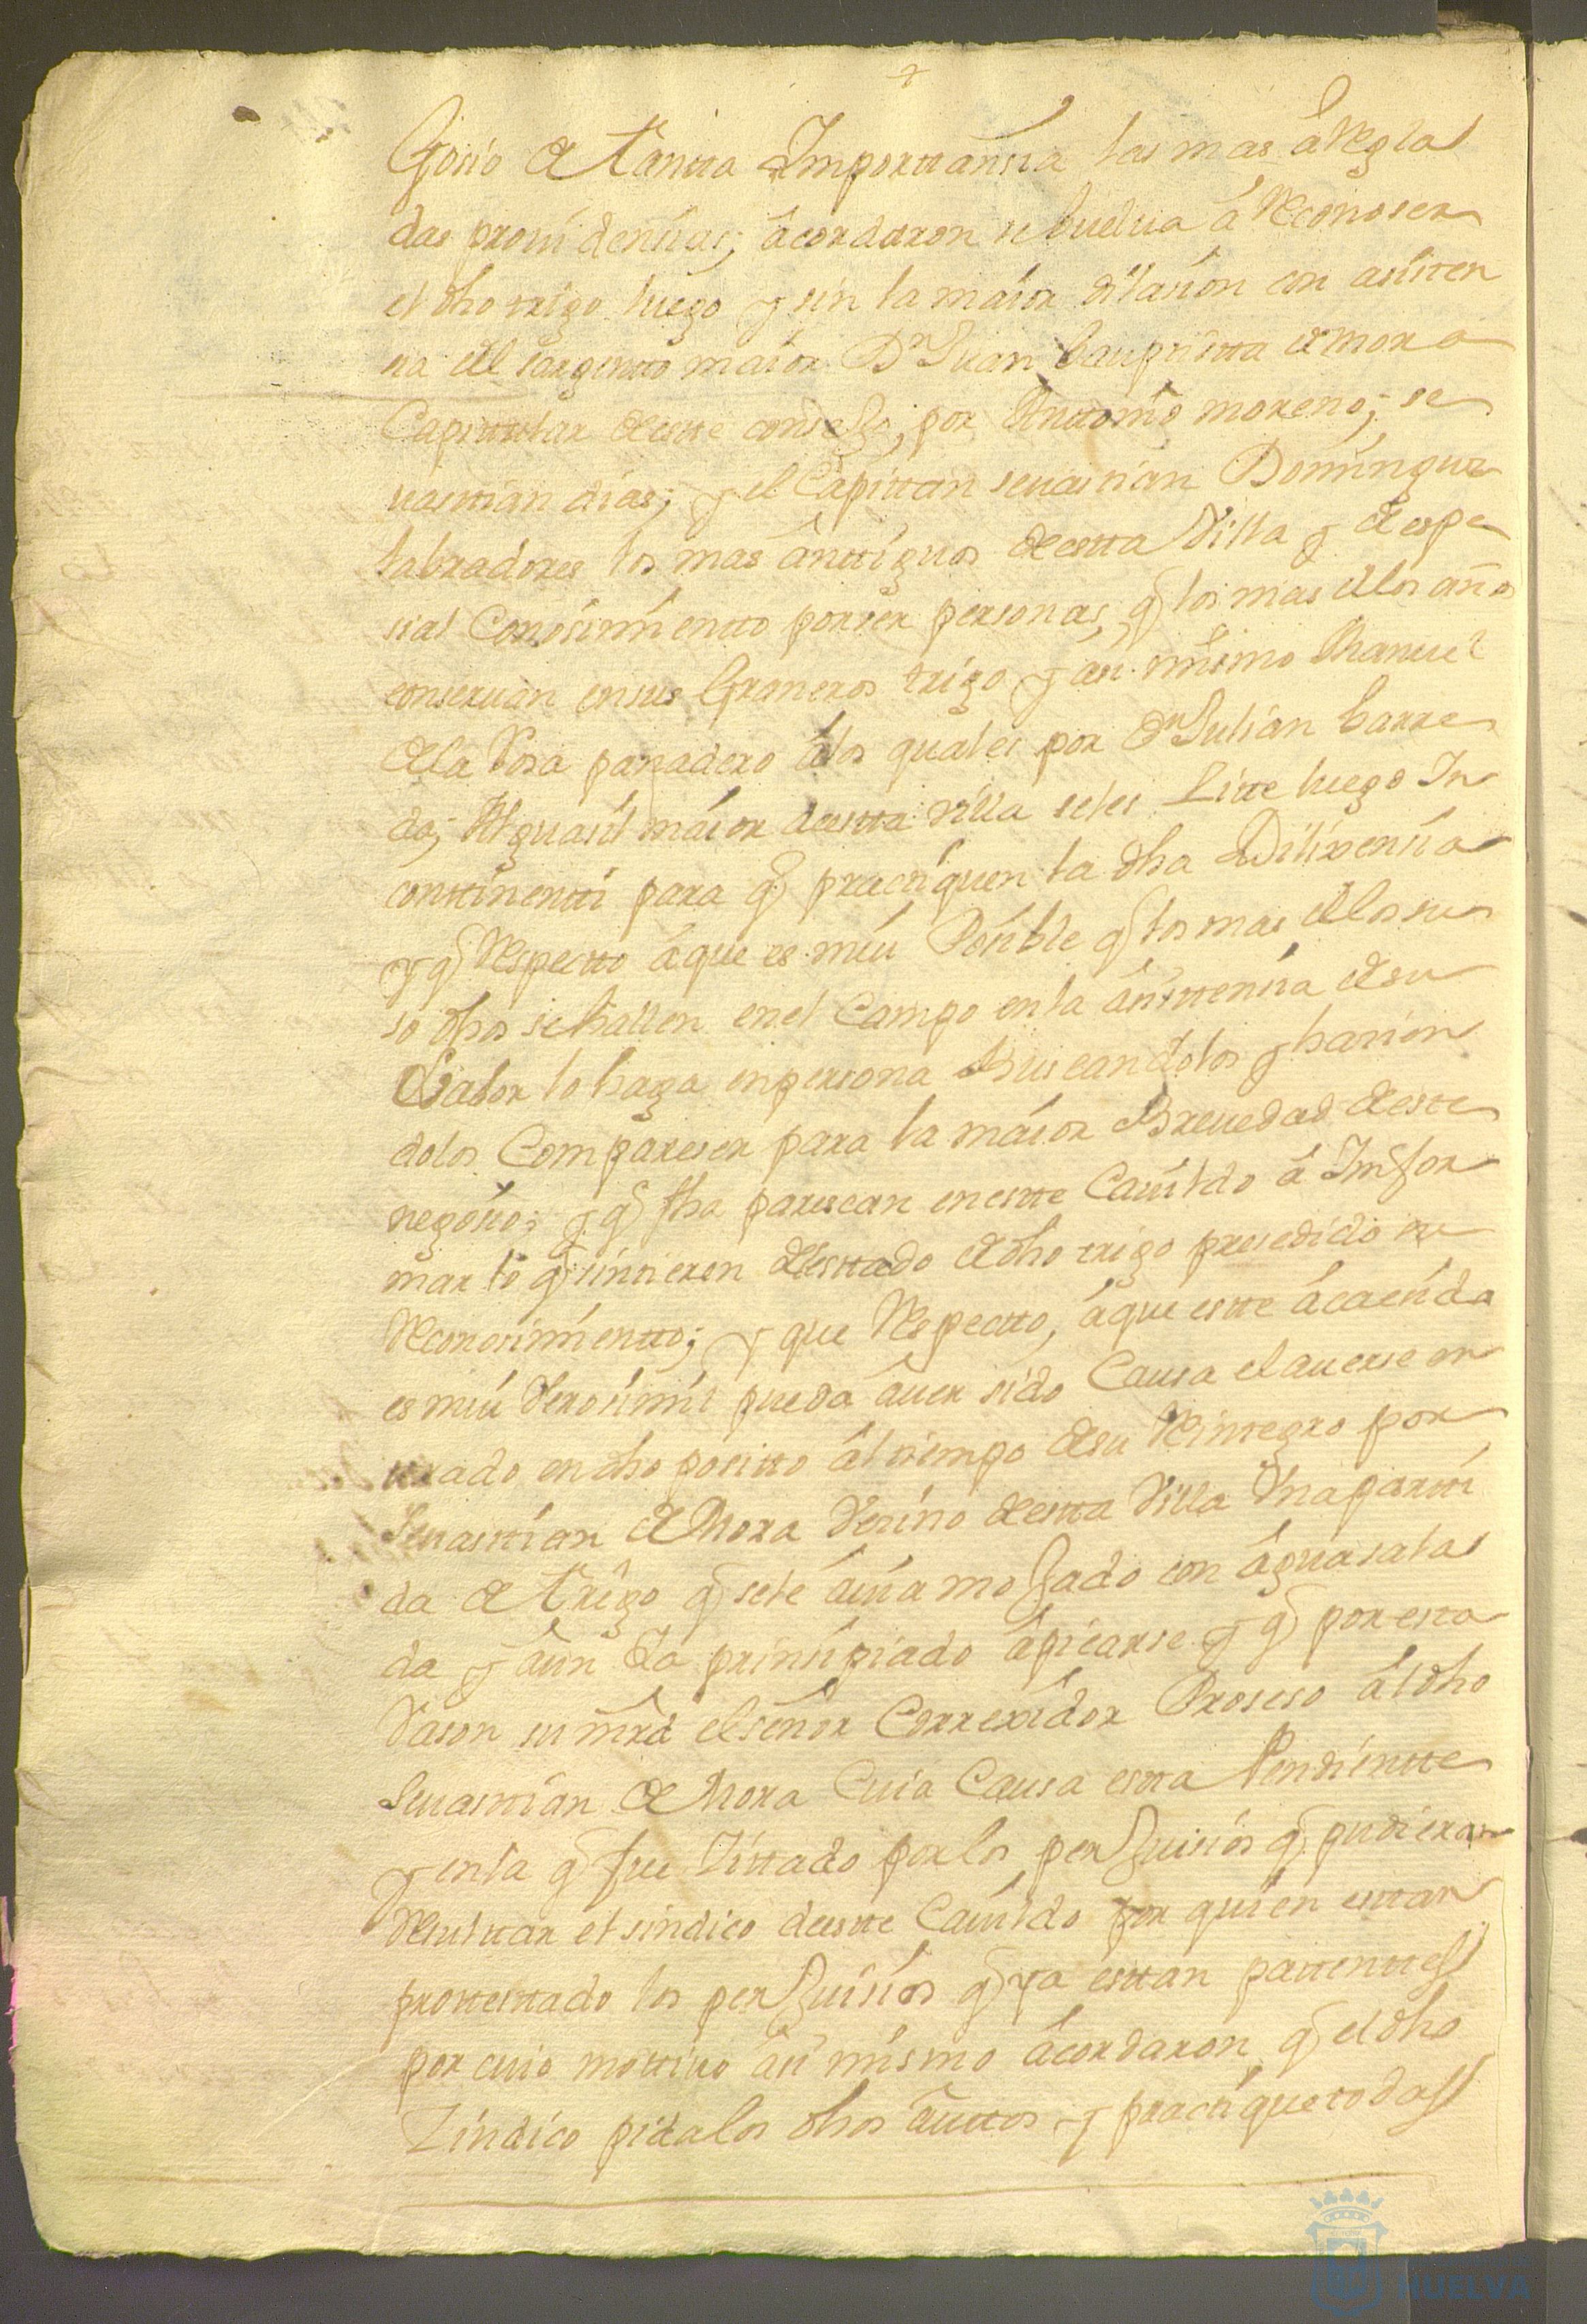 gosio de tantta Importtansia las mas aRegla
das providensias; acordaron se buelva a Reconoser
el dho trigo luego y sin la maior dilasion con asisten
sia del sargentto maior Dn Juan bauptistta de mora
Capittular de estte consejo, por Anttonio moreno; se
vasttian dias; y el Capittan sevastian Domingues
labradores los mas anttiguos de estta Villa y de espe
sial Conosimientto por ser personas, q los mas de los años
conservan en sus Graneros trigo y asi mismo Manuel
de la Rosa panadero a los quales por Dn Julian barre
da; Alguasil maior de estta villa se les Sitte luego In
conttinentti para q practiquen la dha Dilixensia
y q Respectto a que es mui Posible q los mas de los su
so dhos se hallen en el Campo en la asisttensia de su
Labor lo haga en persona Buscandolos y hasien
dolos Compareser para la maior Brevedad de estte
negosio; y q fho parescan en estte Cavildo a Imfor
mar lo q sinttieren del esttado de dho trigo presedido su
Reconosimientto; y que Respectto, a que estte acaesida
es mui Verosimil pueda aver sido Causa el averse en
ttrado en dho positto al tiempo de su Reinttegro por
Sevasttian de Mora Vesino de estta Villa Una partti
da de trigo q se le avia mojado con agua sala
da y aun Ya prinsipiado a picarse y q por esta
Rason su mrd el señor Correxidor Proseso al dho
Sevasttian de Mora Cuia Causa estta Pendientte
y en la q fue Sittado por los perjuisios q pudieran
Resulttar el sindico de estte Cavildo por quien esttan
prottesttado los perjuisios q ya esttan pattenttes
por cuio mottivo asi mismo acordaron q el dho
Sindico pida los dhos auttos y practique todas
HUELVA